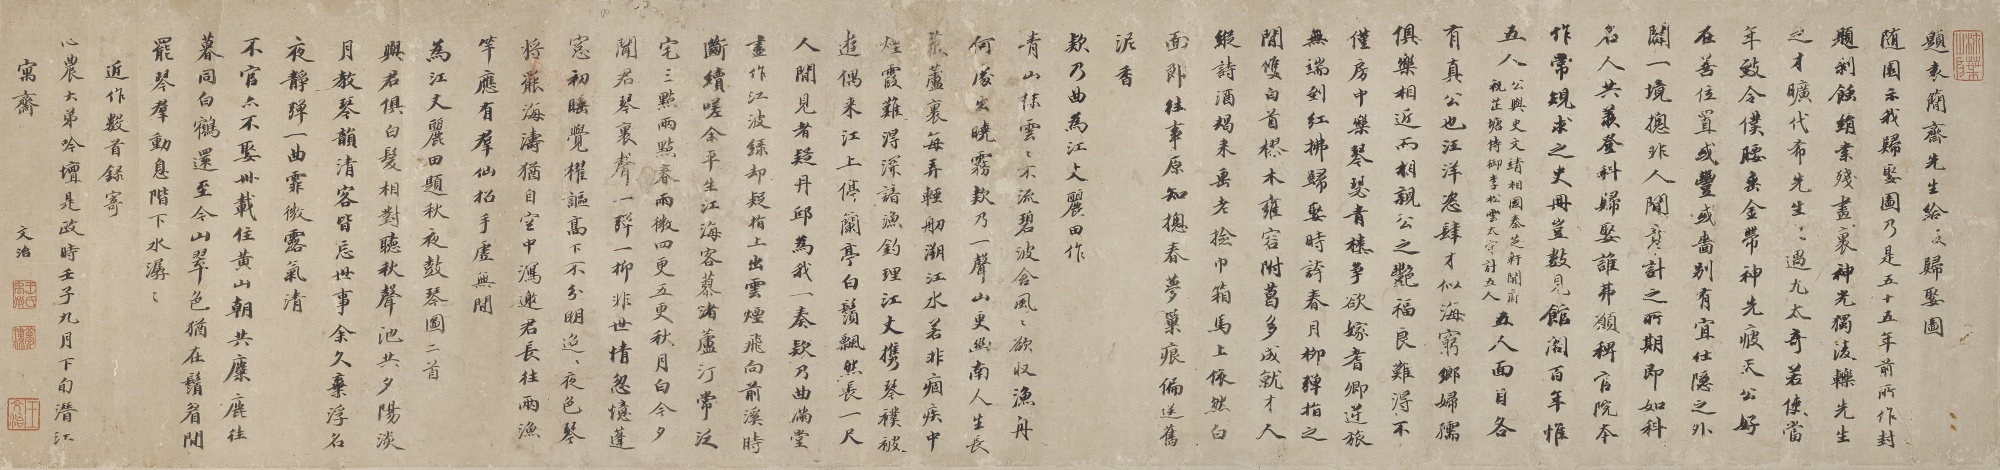 題袁簡齋先生給假歸娶圖
随園示我歸娶圖乃是五十五年前所作封
題剥蝕綃素殘畫裏神光獨淩轢先生
之才曠代希先生之遇尤太奇若使當
年致令僕腰垂金帶神先疲天公好
在善位置或豐或嗇别有宜仕隱之外
闢一境摠非人間貧計之所期即如科
名人共羨登科歸娶誰弗願稗官院本
作常規求之史冊豈數見館閣百年惟
五人公與史文靖相國秦芝軒開府
祝芷塘侍御李松雲太守計五人五人面目各
有真公也汪洋恣肆才似海窮鄉婦孺
俱樂相近而相親公之艷福良難得不
僅房中樂琴瑟青樓爭欲嫁耆卿逆旅
無端到紅拂歸娶時誇春月柳彈指之
間雙白首樛木雍容附葛多成就才人
縱詩酒朅来垂老撿巾箱馬上依然白
面郎往事原知摠春夢巢痕偏送舊
泥香
欵乃曲為江丈麗田作
青山㑣雲雲不流碧波含風風欲収漁舟
何處出曉霧欵乃一聲山更幽南人生長
菰蘆裏每弄輕舠溯江水若非痼疾中
煙霞難得深諳漁釣理江丈携琴襆被
遊偶来江上停蘭亭白鬚飄然長一尺
人間見者疑丹邱為我一奏欵乃曲滿堂
畫作江波緑却疑指上出雲煙飛向前溪時
斷續嗟余平生江海客蓼渚蘆汀常泛
宅三點兩點春雨微四更五更秋月白今夕
聞君琴裏聲一彈一抑非世情忽憶蓬
窓初睡覺櫂謳高下不分明迢迢夜色琴
将罷海濤猶自空中瀉邀君長往兩漁
竿應有羣仙招手虛無間
為江丈麗田題秋夜鼓琴圖二首
與君俱白髮相對聽秋聲池共夕陽淡
月教琴韻清客皆忘世事余久棄浮名
夜靜彈一曲霏微露氣清
不官亦不娶卅載住黄山朝共麋鹿往
暮同白鶴還至今山翠色猶在鬚眉間
罷琴羣動息階下水潺潺
近作数首録寄
心農大弟吟壇是政時壬子九月下旬潛江
寓齋　文治